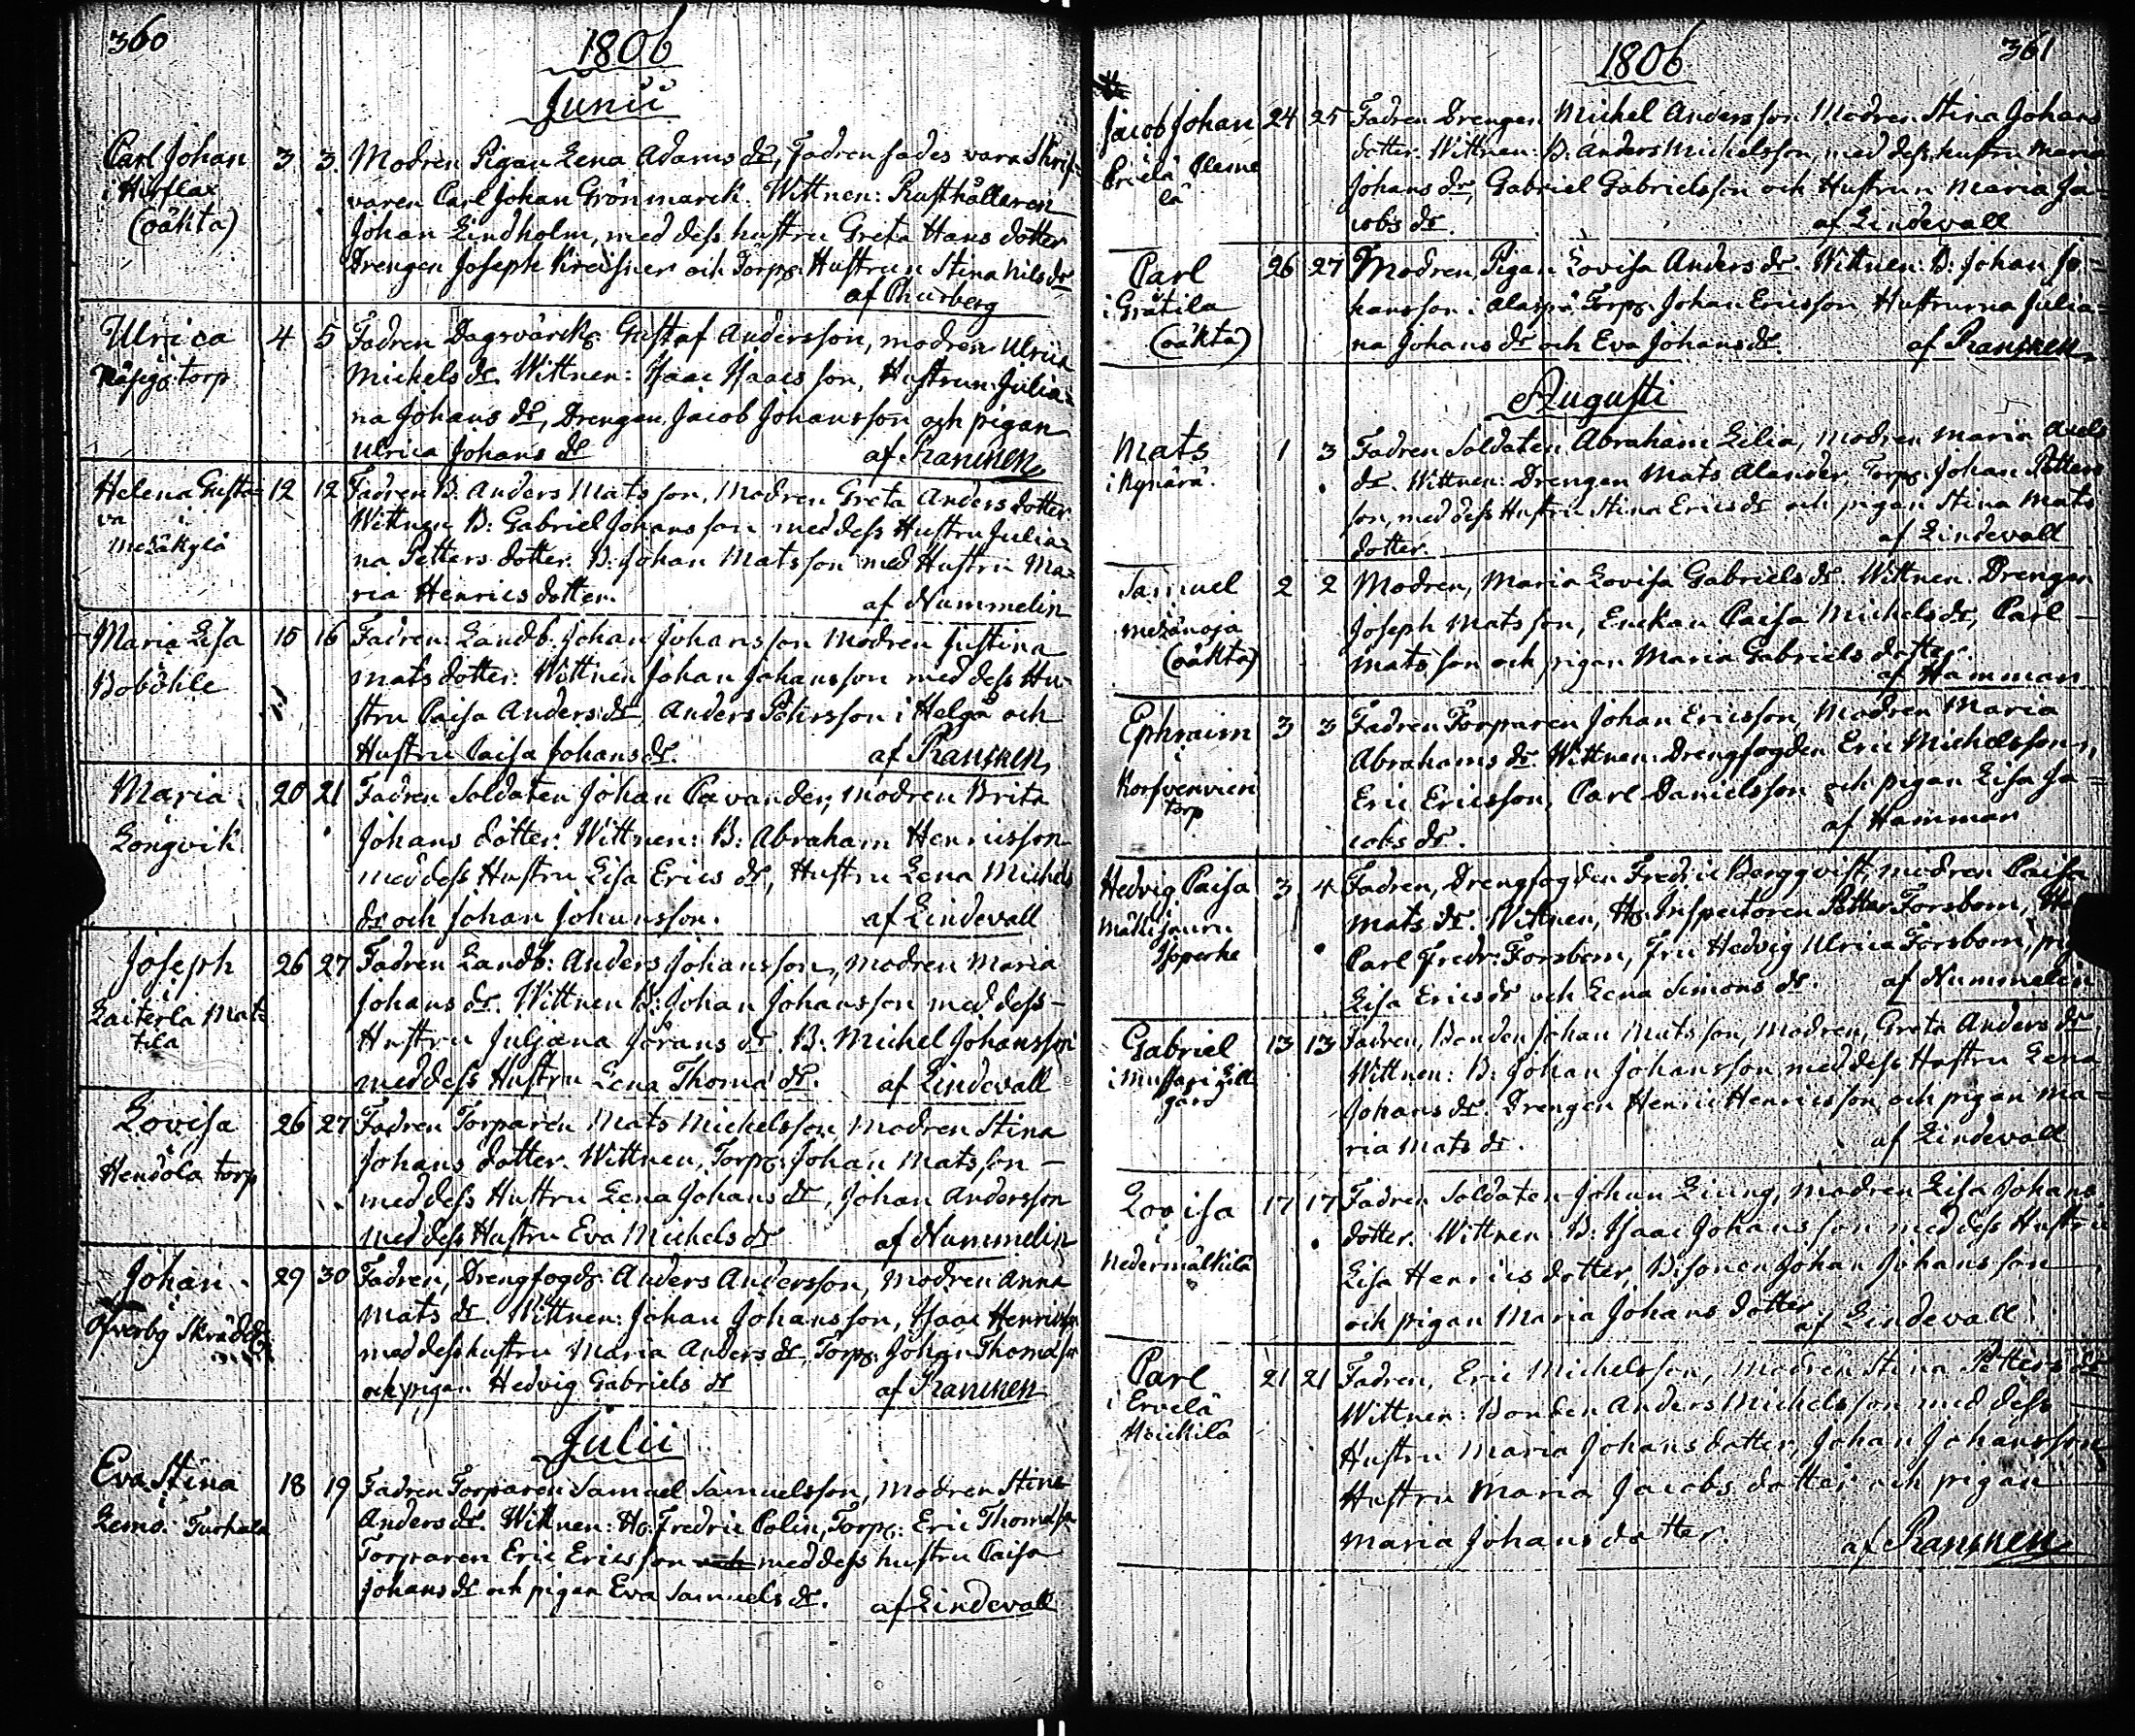 360
1806
Junii
Carl Johan
i
(oäkta)
3 3. Modren Pigan Lena Adams dr, Fadren sades vara Skrif-
varen Carl Johan Grönmarck. Wittnen: Rusthållaren
Johan Lindholm, med dess hustru Greta Hans dotter
Drengen Joseph Kreisner och Torp: Hustrun Stina Nils dr
af Thurberg
Ulrica
torp
4 5 Fadren Dagsvärck: Gustaf Andersson, modren Ulrica
Michels dr. Wittnen: Isaac Isaacsson, Hustrun Julia-
na Johans dr, Drengen Jacob Johansson och pigan
Ulrica Johans dr af Rancken
Helena Gusta-
va i
Mezäkylä
12 12 Fadren B: Anders Matsson, Modren Greta Anders dotter
Wittnen B: Gabriel Johansson med dess Hustru Julia-
na Petters dotter. B: Johan Matsson med Hustru Ma-
ria Henrics dotter. af Nummelin
Maria Lisa
Boböhle
15 16 Fadren Landb: Johan Johansson Modren Justina
Mats dotter: Wittnen Johan Johansson med dess Hu-
stru Caisa Anders dr, Anders i Helgå och
Hustru Caisa Johans dr. af Rancken
Maria
Långvik
20 21 Fadren Soldaten Johan Cavander, modren Brita
Johans dotter: Wittnen: B: Abraham Henricsson
med dess Hustru Lisa Erics dr, Hustru Lena Michels
dr och Johan Johansson. af Lindevall
Joseph
i
Laiterla Mat-
tila
26 27 Fadren Landb: Anders Johansson, modren Maria
Johans dr. Wittnen B: Johan Johansson med dess
Hustru Juljana Jörans dr. B: Michel Johansson
med dess Hustru Lena Thoma dr. af Lindevall
Lovisa
i
Hendola torp
26 27 Fadren Torparen Mats Michelsson, modren Stina
Johans dotter. Wittnen, Torp: Johan Matsson
med dess Hustru Lena Johans dr, Johan Andersson
med dess Hustru Eva Michels dr af Nummelin
Johan
i
Öfverby
29 30 Fadren, Drengfogd: Anders Andersson, Modren Anna
Mats dr. Wittnen: Johan Johansson, Isaac Henricsson
med dess hustru Maria Anders dr, Torp: Johan Thomasson
och pigan Hedvig Gabriels dr af Rancken
Julii
Eva Stina
i
Lemo
18 19 Fadren Torparen Samuel Samuelsson, Modren Stina
Anders dr. Wittnen: Hr: Fredric Polin, Torp: Eric Thomasson
Torparen Eric Ericsson och med dess hustru Caisa
Johans dr och pigan Eva Samuels dr. af Lindevall
1806
361
Jacob Johan
24 25 Fadren Drengen Michel Andersson Modren Stina Johans
dotter. Wittnen: B: Anders Michelsson, med dess hustru Maria
Johans dr, Gabriel Gabrielsson och Hustrun Maria Ja-
cobs dr. af Lindevall
Carl
i Grätila
(oäkta)
26 27 Modren, Pigan Lovisa Anders dr. Wittnen: B: Johan Jo-
hansson i Torp: Johan Ericsson Hustrurna Julia-
na Johans dr och Eva Johans dr. af Rancken
Augusti
Mats
i
1 3 Fadren Soldaten Abraham Lilia, Modren Maria Axels
dr. Wittnen: Drengen Mats Alander, Torp: Johan Petters
son, med dess Hustru Stina Erics dr och pigan Stina Mats
dotter. af Lindevall
Samuel
i
Mezänoja
(oäkta)
2 2 Modren, Maria Lovisa Gabriels dr. Wittnen: Drengen
Joseph Matsson, Enckan Caisa Michels dr, Carl
Matsson och pigan Maria Gabriels dotter.
af Hamman
Ephraim
i
torp
3 3 Fadren Torparen Johan Ericsson, Modren Maria
Abrahams dr. Wittnen: Drengfogden Eric Michelsson,
Eric Ericsson, Carl Danielsson och pigan Lisa Ja-
cobs dr. af Hamman
Hedvig Caisa
i
3 4 Fadren, Drengfogden Fredric Bergqvist, modren Caisa
Mats dr. Wittnen, Hr: Inspectoren Petter Forsbom, Hr
Carl Fredr: Forsbom, Fru Hedvig Ulrica Forsbom,
Lisa Erics dr och Lena Simons dr. af Nummelin
Gabriel
i
gård
13 13 Fadren, Bonden Johan Matsson, Modren, Greta Anders dr
Wittnen: B: Johan Johansson med dess Hustru Lena
Johans dr. Drengen Henric Henricsson och pigan Ma-
ria Mats dr. af Lindevall
Lovisa
i
Nedermälkilä
17 17 Fadren Soldaten Johan Liung, modren Lisa Johans
dotter. Wittnen: B: Isaac Johansson med dess Hustru
Lisa Henrics dotter, Bisonen Johan Johansson
och pigan Maria Johans dotter. af Lindevall
Carl
i Ervelä
Heickilä
21 21 Fadren, Eric Michelsson, Modren Stina Petters dr
Wittnen: Bonden Anders Michelsson med dess
Hustru Maria Johans dotter, Johan Johansson
Hustru Maria Jacobs dotter och pigan
Maria Johans dotter. af Rancken